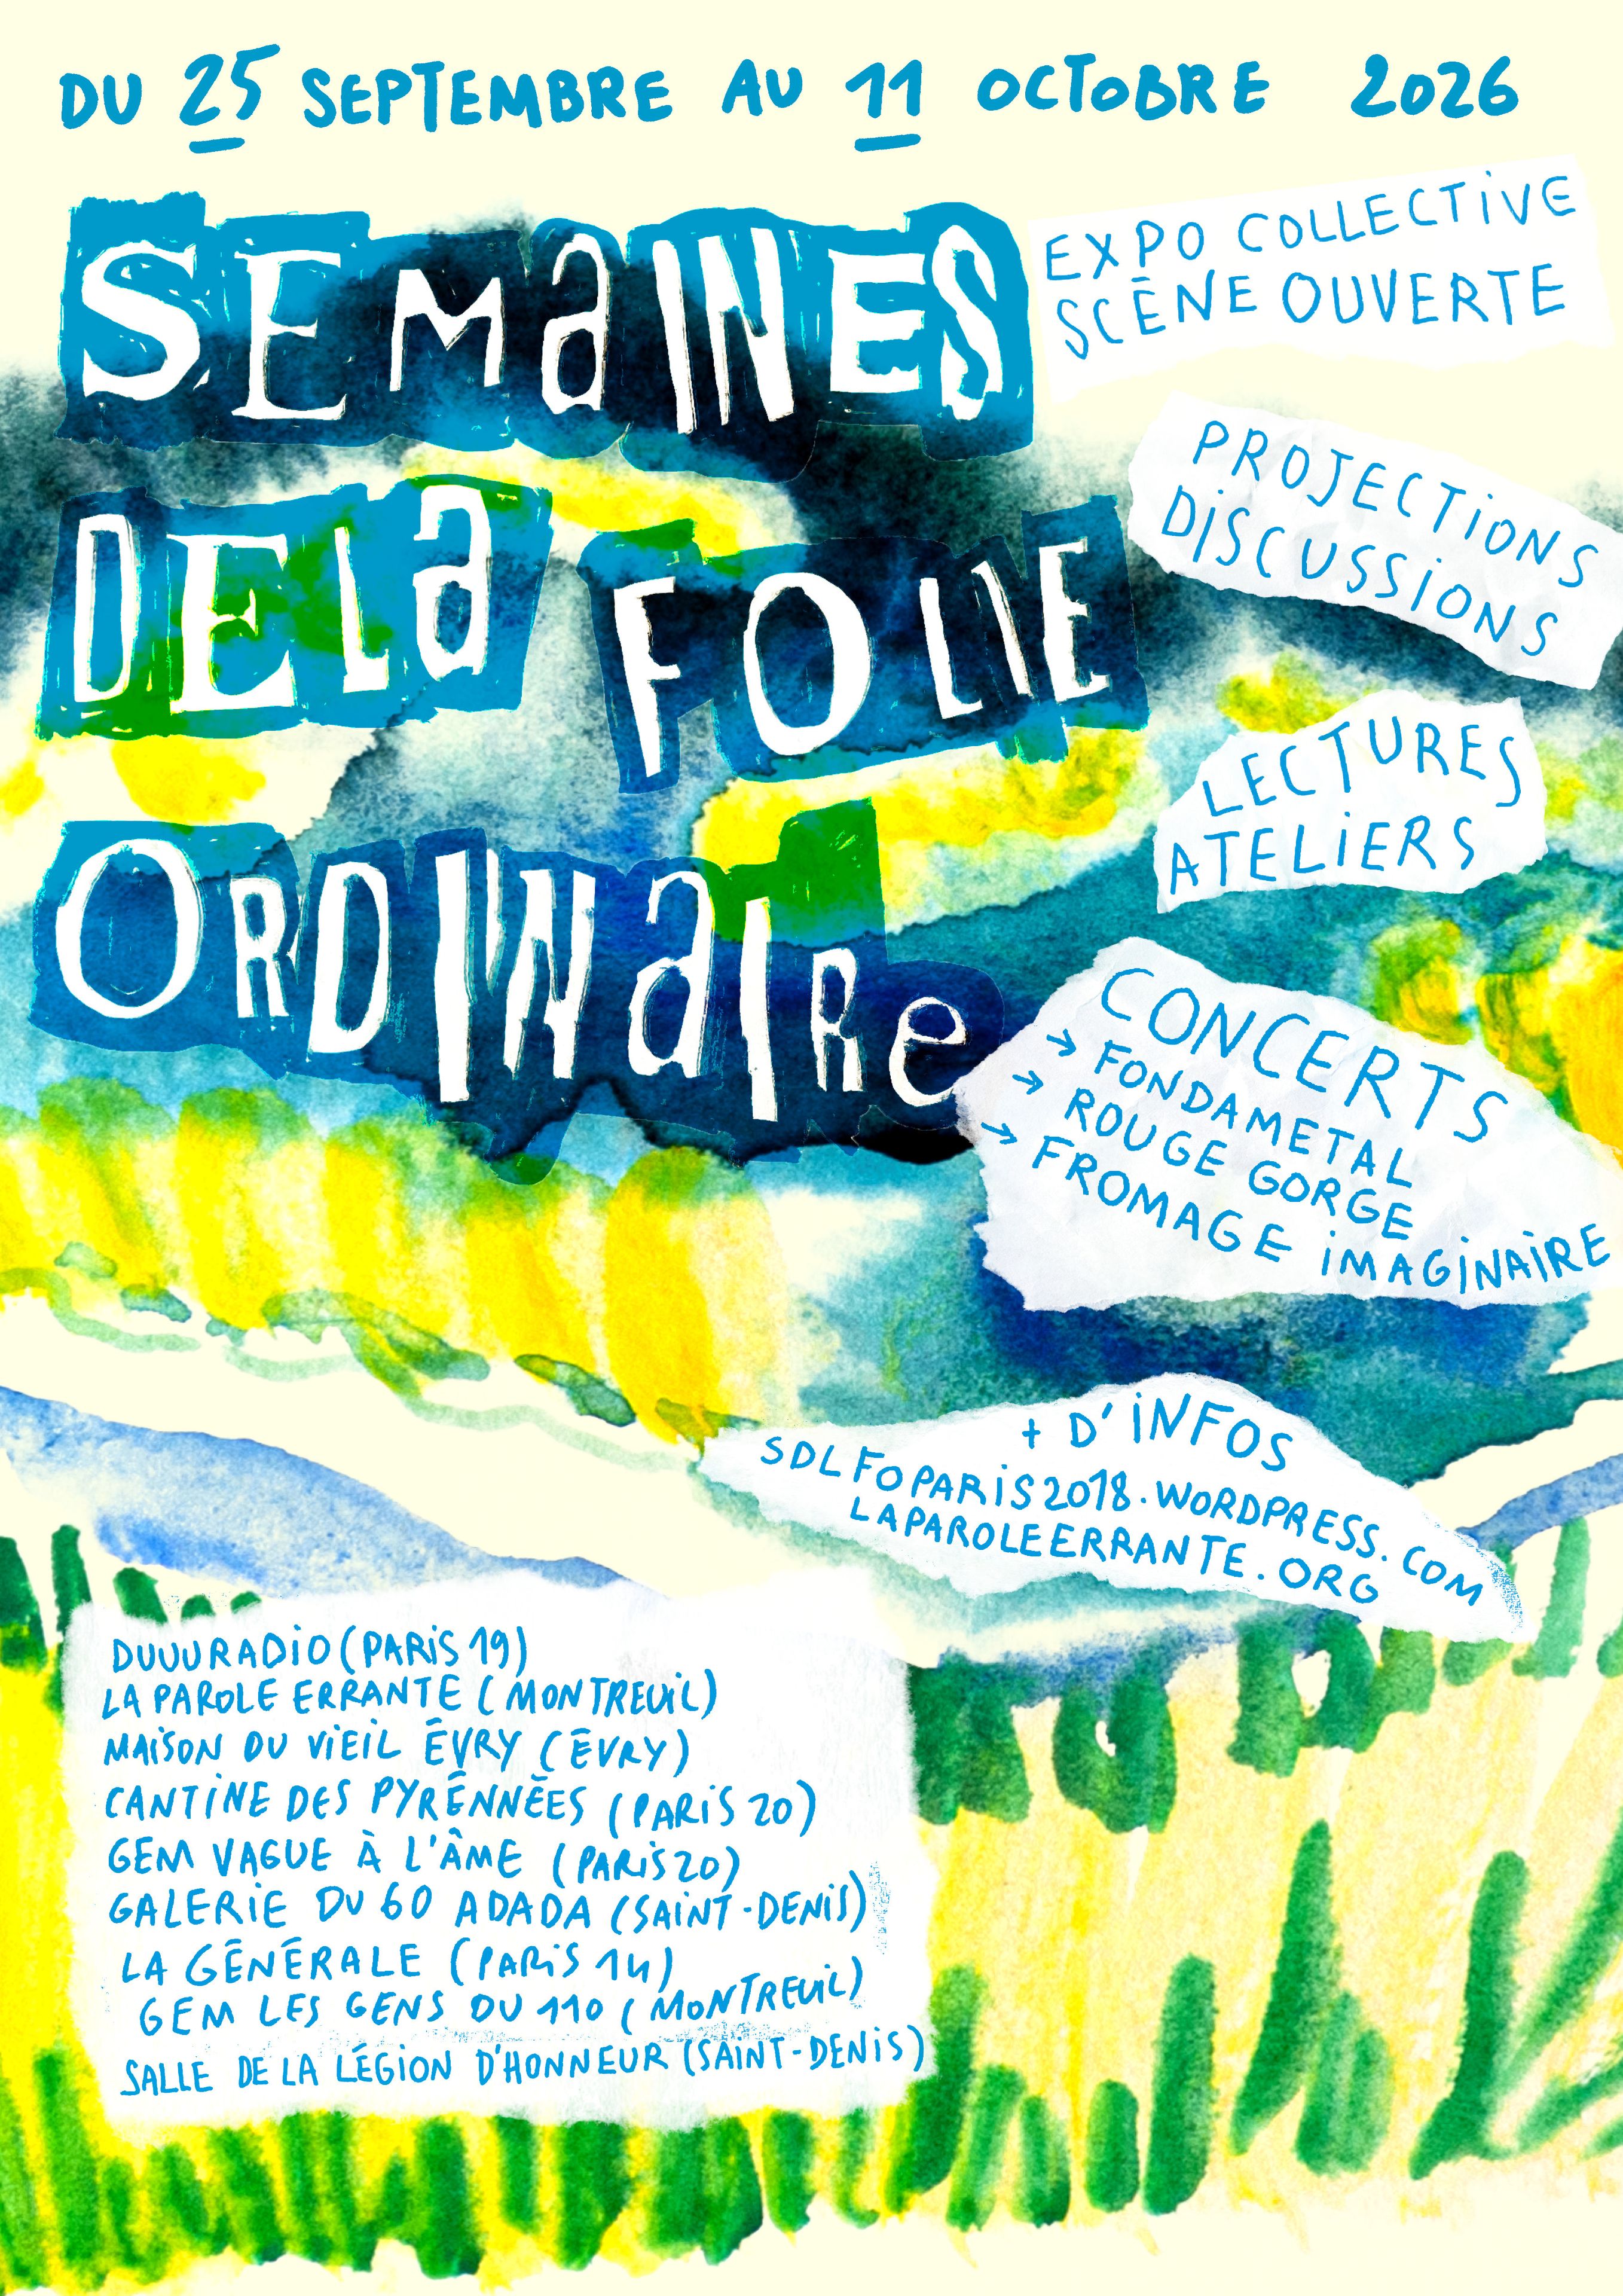 DU 25 SEPTEMBRE AU 11 OCTOBRE 2026
SEMaINES
DE La FOLIE
ORDINaIRe
EXPO COLLECTiVE
SCÈNE OUVERTE
PROJECTiONS
DiSCUSSiONS
LECTURES
ATELiERS
CONCERTS
→ FONDAMETAL
→ ROUGE GORGE
→ FROMAGE iMAGiNAiRE
+ D'iNFOS
SDLFOPARiS2018.WORDPRESS.COM
LAPAROLEERRANTE.ORG
DUUURADIO (PARiS 19)
LA PAROLE ERRANTE (MONTREUiL)
MAiSON DU ViEiL ÉVRY (ÉVRY)
CANTiNE DES PYRÉNNÉES (PARiS 20)
GEM VAGUE À L'ÂME (PARiS 20)
GALERiE DU 60 ADADA (SAiNT-DENiS)
LA GÉNÉRALE (PARiS 14)
GEM LES GENS DU 110 (MONTREUiL)
SALLE DE LA LÉGiON D'HONNEUR (SAiNT-DENiS)